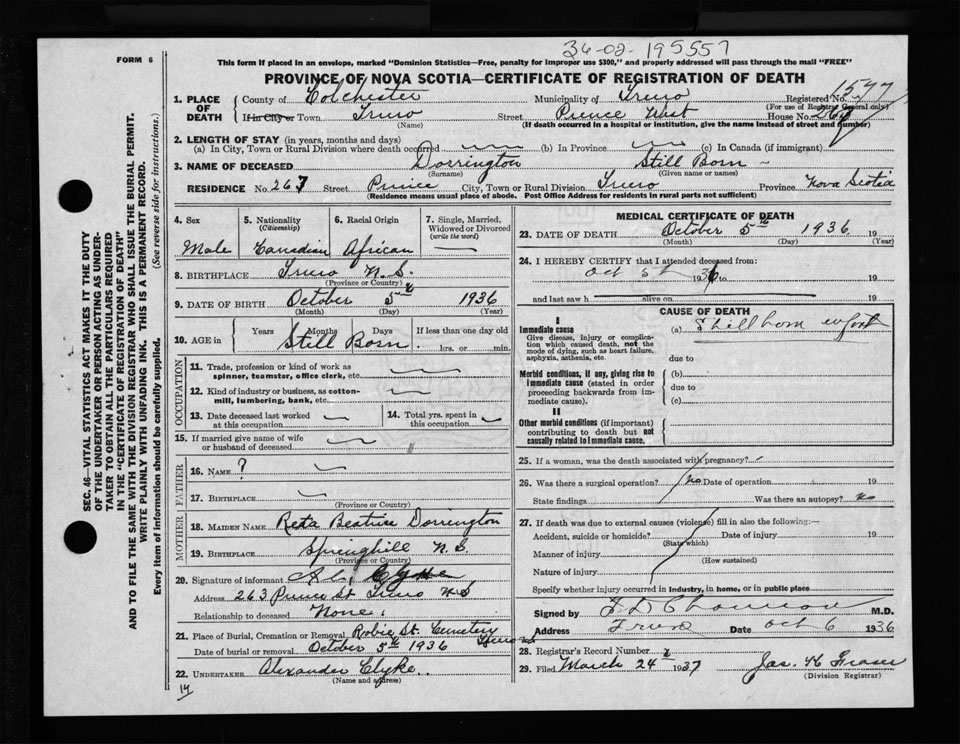 36-02-195557
FORM 6
This form if placed in an envelope, marked "Dominion Statistics—Free, penalty for improper use $300," and properly addressed will pass through the mail "FREE"
PROVINCE OF NOVA SCOTIA—CERTIFICATE OF REGISTRATION OF DEATH
1577
1. PLACE OF DEATH County of Colchester Municipality of Truro Registered No. (For use of Registrar General only)
If in City or Town Truro (Name) Street Prince West House No. 267
(If death occurred in a hospital or institution, give the name instead of street and number)
2. LENGTH OF STAY (in years, months and days)
(a) In City, Town or Rural Division where death occurred (b) In Province (c) In Canada (if immigrant)
3. NAME OF DECEASED Dorrington (Surname) Still Born (Given name or names)
RESIDENCE No. 267 Street Prince City, Town or Rural Division Truro Province Nova Scotia
(Residence means usual place of abode. Post Office Address for residents in rural parts not sufficient)
4. Sex Male
5. Nationality (Citizenship) Canadian
6. Racial Origin African
7. Single, Married, Widowed or Divorced (write the word)
8. BIRTHPLACE Truro N.S. (Province or Country)
9. DATE OF BIRTH October 5th 1936 (Month) (Day) (Year)
10. AGE in Years Months Days If less than one day old
Still Born hrs. or min.
OCCUPATION
11. Trade, profession or kind of work as spinner, teamster, office clerk, etc.
12. Kind of industry or business, as cotton-mill, lumbering, bank, etc.
13. Date deceased last worked at this occupation
14. Total yrs. spent in this occupation
15. If married give name of wife or husband of deceased
FATHER
16. NAME ?
17. BIRTHPLACE (Province or Country)
MOTHER
18. MAIDEN NAME Reta Beatrice Dorrington
19. BIRTHPLACE Springhill N.S. (Province or Country)
20. Signature of informant Clyke
Address 263 Prince St Truro N.S
Relationship to deceased None.
21. Place of Burial, Cremation or Removal Robie St. Cemetery Truro
Date of burial or removal October 5th 1936
22. UNDERTAKER Alexander Clyke (Name and address)
14
MEDICAL CERTIFICATE OF DEATH
23. DATE OF DEATH October 5th 1936 (Month) (Day) (Year)
24. I HEREBY CERTIFY that I attended deceased from:
Oct 5th 1936 to 19
and last saw h alive on 19
CAUSE OF DEATH
I
Immediate cause
Give disease, injury or complication which caused death, not the mode of dying, such as heart failure, asphyxia, asthenia, etc.
(a) Stillborn infant
due to
Morbid conditions, if any, giving rise to immediate cause (stated in order proceeding backwards from immediate cause).
(b)
due to
(c)
II
Other morbid conditions (if important) contributing to death but not causally related to immediate cause.
25. If a woman, was the death associated with pregnancy?
26. Was there a surgical operation? No Date of operation 19
State findings Was there an autopsy? No
27. If death was due to external causes (violence) fill in also the following:—
Accident, suicide or homicide? (State which) Date of injury 19
Manner of injury (How sustained)
Nature of injury
Specify whether injury occurred in industry, in home, or in public place
Signed by M.D.
Address Truro Date Oct 6 1936
28. Registrar's Record Number
29. Filed March 24 1937 Jas. H Fraser
(Division Registrar)
SEC. 46—VITAL STATISTICS ACT MAKES IT THE DUTY
OF THE UNDERTAKER OR PERSON ACTING AS UNDER-
TAKER TO OBTAIN ALL THE PARTICULARS REQUIRED
IN THE "CERTIFICATE OF REGISTRATION OF DEATH"
AND TO FILE THE SAME WITH THE DIVISION REGISTRAR WHO SHALL ISSUE THE BURIAL PERMIT.
WRITE PLAINLY WITH UNFADING INK. THIS IS A PERMANENT RECORD.
Every item of information should be carefully supplied. (See reverse side for instructions.)